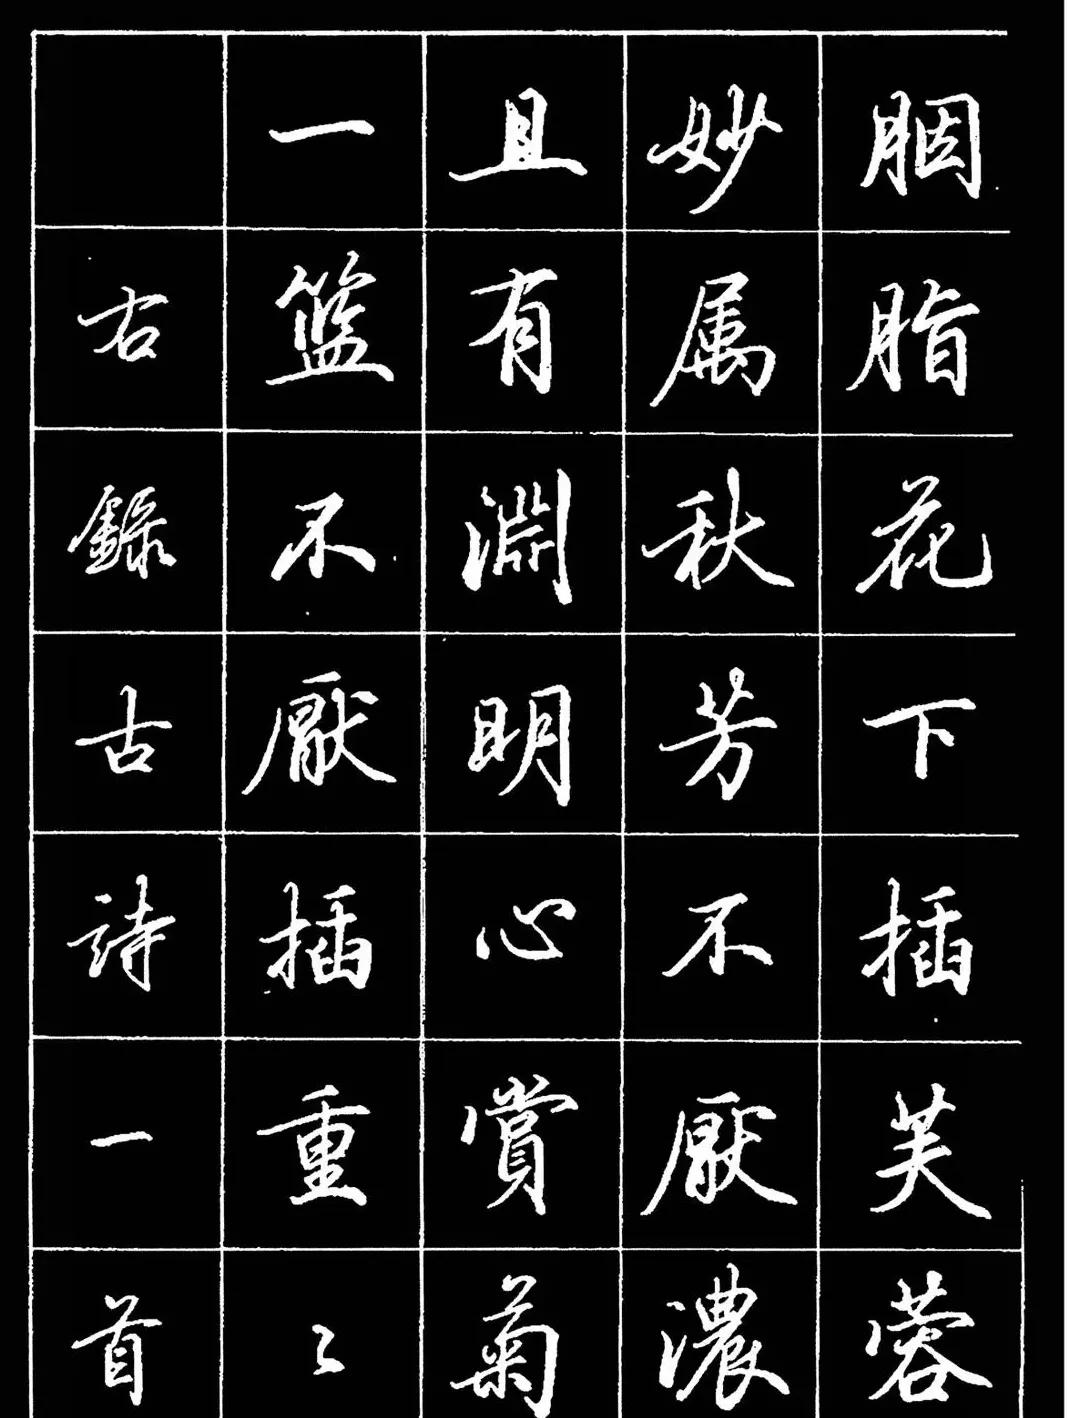 胭脂花下插芙蓉
妙属秋芳不厭濃
且有淵明心賞菊
一篮不厭插重〻
右錄古詩一首